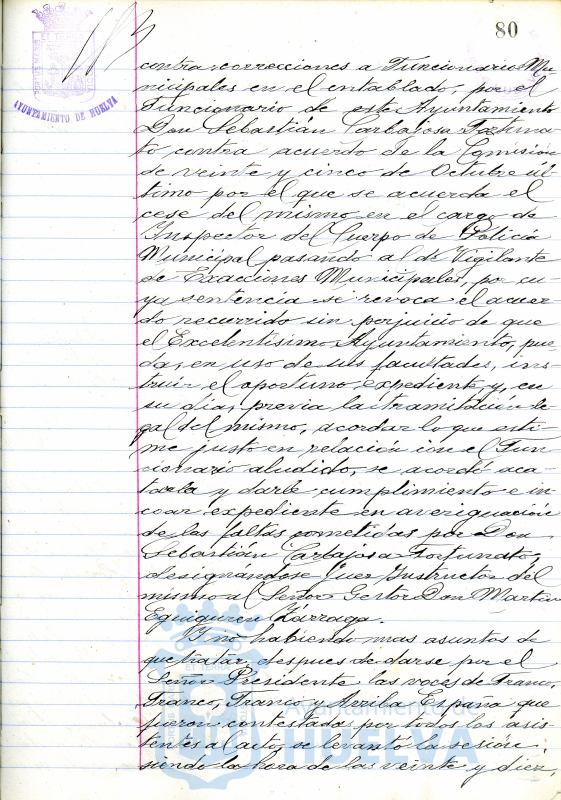 80
AYUNTAMIENTO DE HUELVA
contra correcciones a Funcionarios Mu-
nicipales en el entablado, por el
Funcionario de este Ayuntamiento
Don Sebastián Carbajosa Fortuna-
to contra acuerdo de la Comisión
de veinte y cinco de Octubre úl-
timo por el que se acuerda el
cese del mismo en el cargo de
Inspector del Cuerpo de Policía
Municipal pasando al de Vigilante
de Exacciones Municipales, por cu-
ya sentencia se revoca el acuer-
do recurrido sin perjuicio de que
el Excelentísimo Ayuntamiento, pue-
da, en uso de sus facultades, ins-
truir el oportuno expediente, y, en
su dia, previa la tramitación le-
gal del mismo, acordar lo que esti-
me justo en relación con el Fun-
cionario aludido, se acordó aca-
tarla y darle cumplimiento e in-
coar expediente en averiguación
de las faltas cometidas por Don
Sebastián Carbajosa Fortunato,
designándose Juez Instructor del
mismo al Señor Gestor Don Martin
Eguiguren Lázaga.
Y no habiendo mas asuntos de
que tratar, despues de darse por el
Señor Presidente las voces de Franco,
Franco, Franco, y Arriba España que
fueron contestadas por todos los asis-
tentes al acto, se levanto la sesión,
siendo la hora de las veinte y diez,
Ayuntamiento de
HUELVA